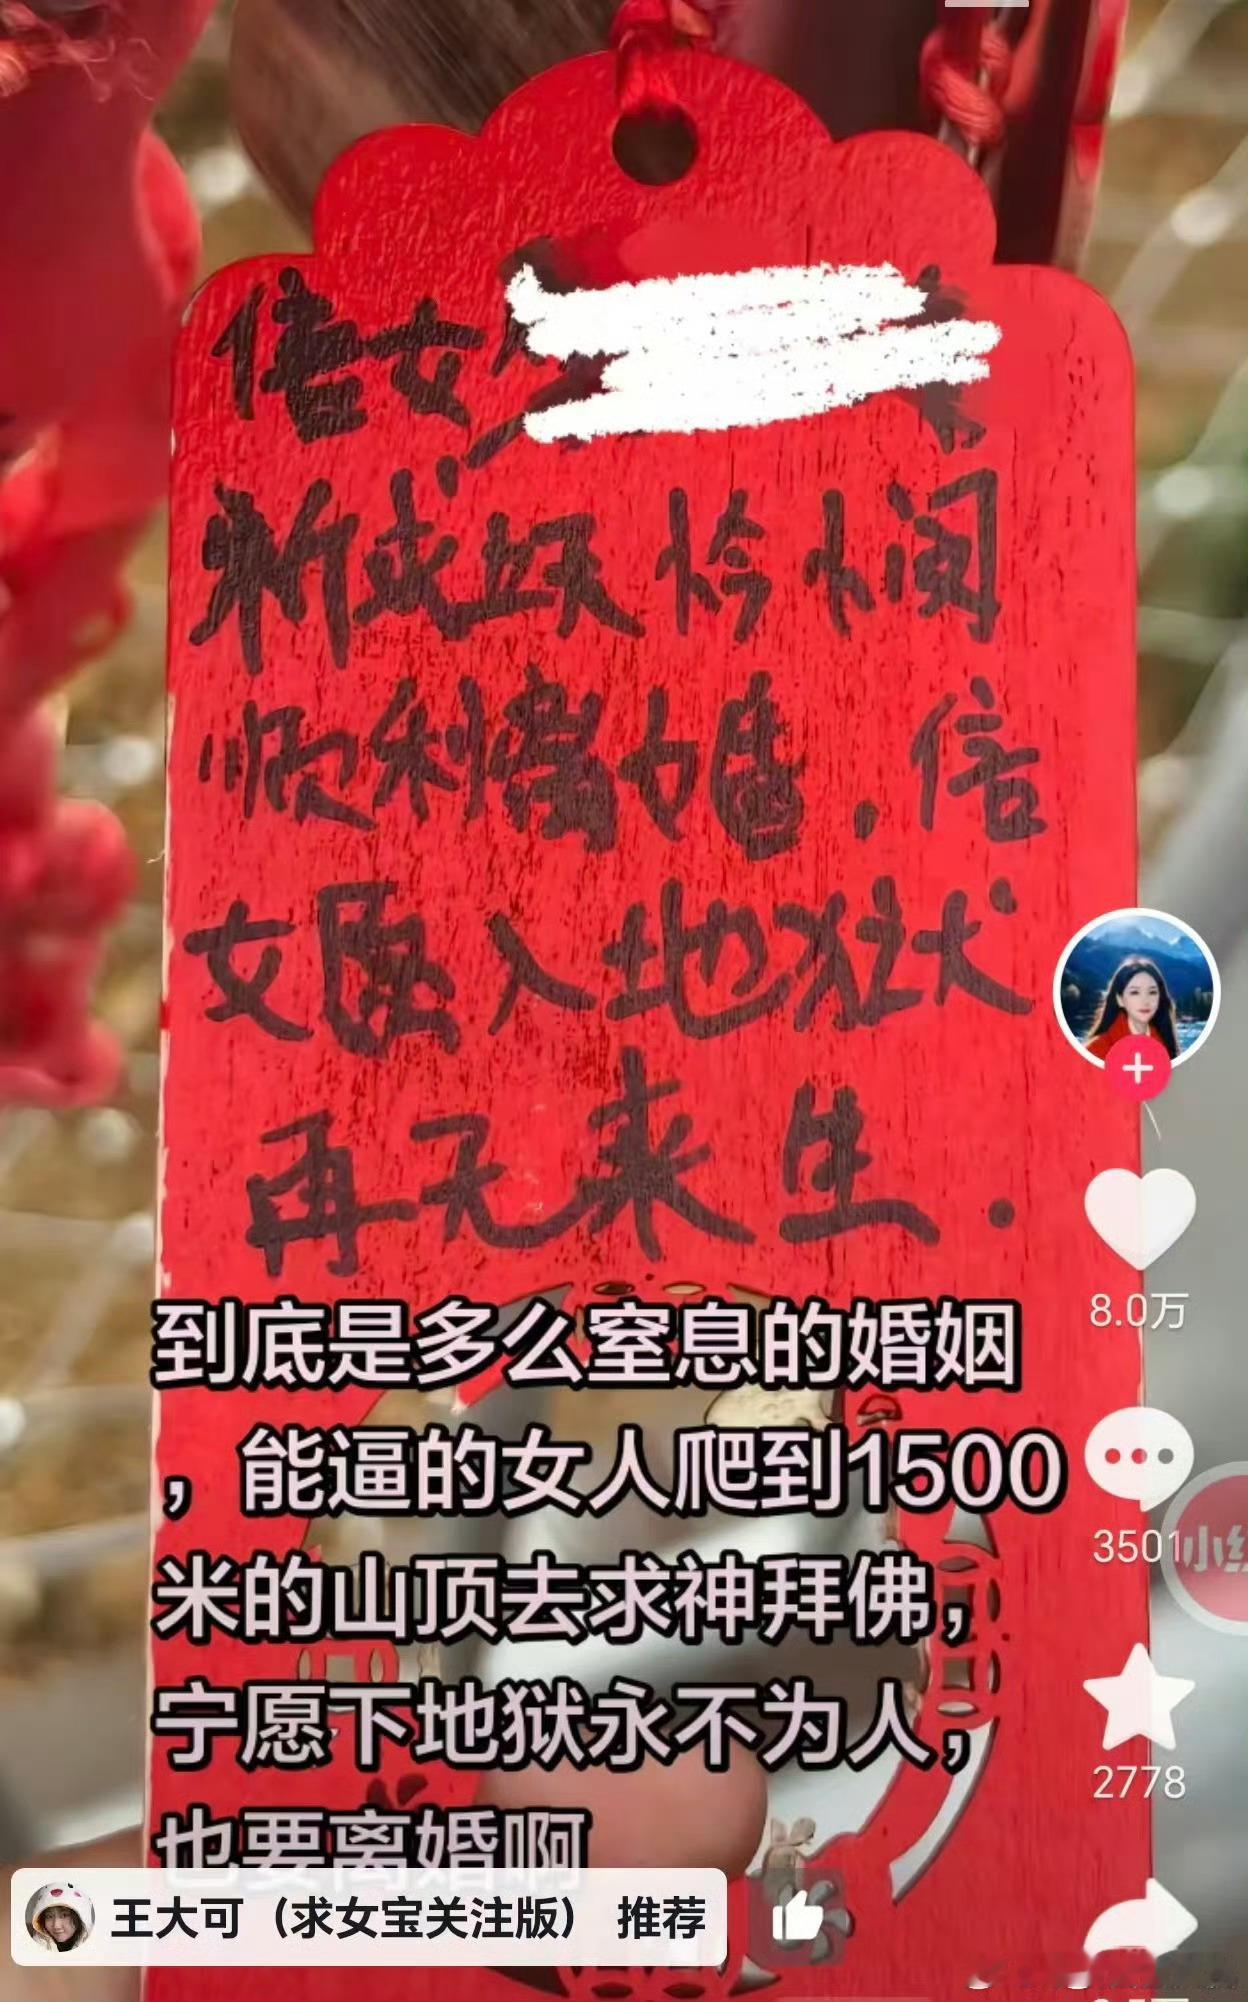 信女
祈求上天怜悯
顺利离婚，信
女愿入地狱
再无来生.
到底是多么窒息的婚姻
，能逼的女人爬到1500
米的山顶去求神拜佛，
宁愿下地狱永不为人，
也要离婚啊
8.0万
3501
小红
2778
王大可（求女宝关注版） 推荐